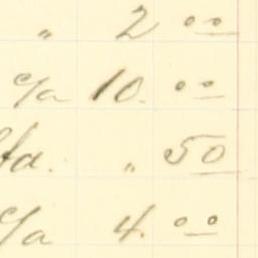 " 2 00
c/a 10. 00
" 50
c/a 4. 00